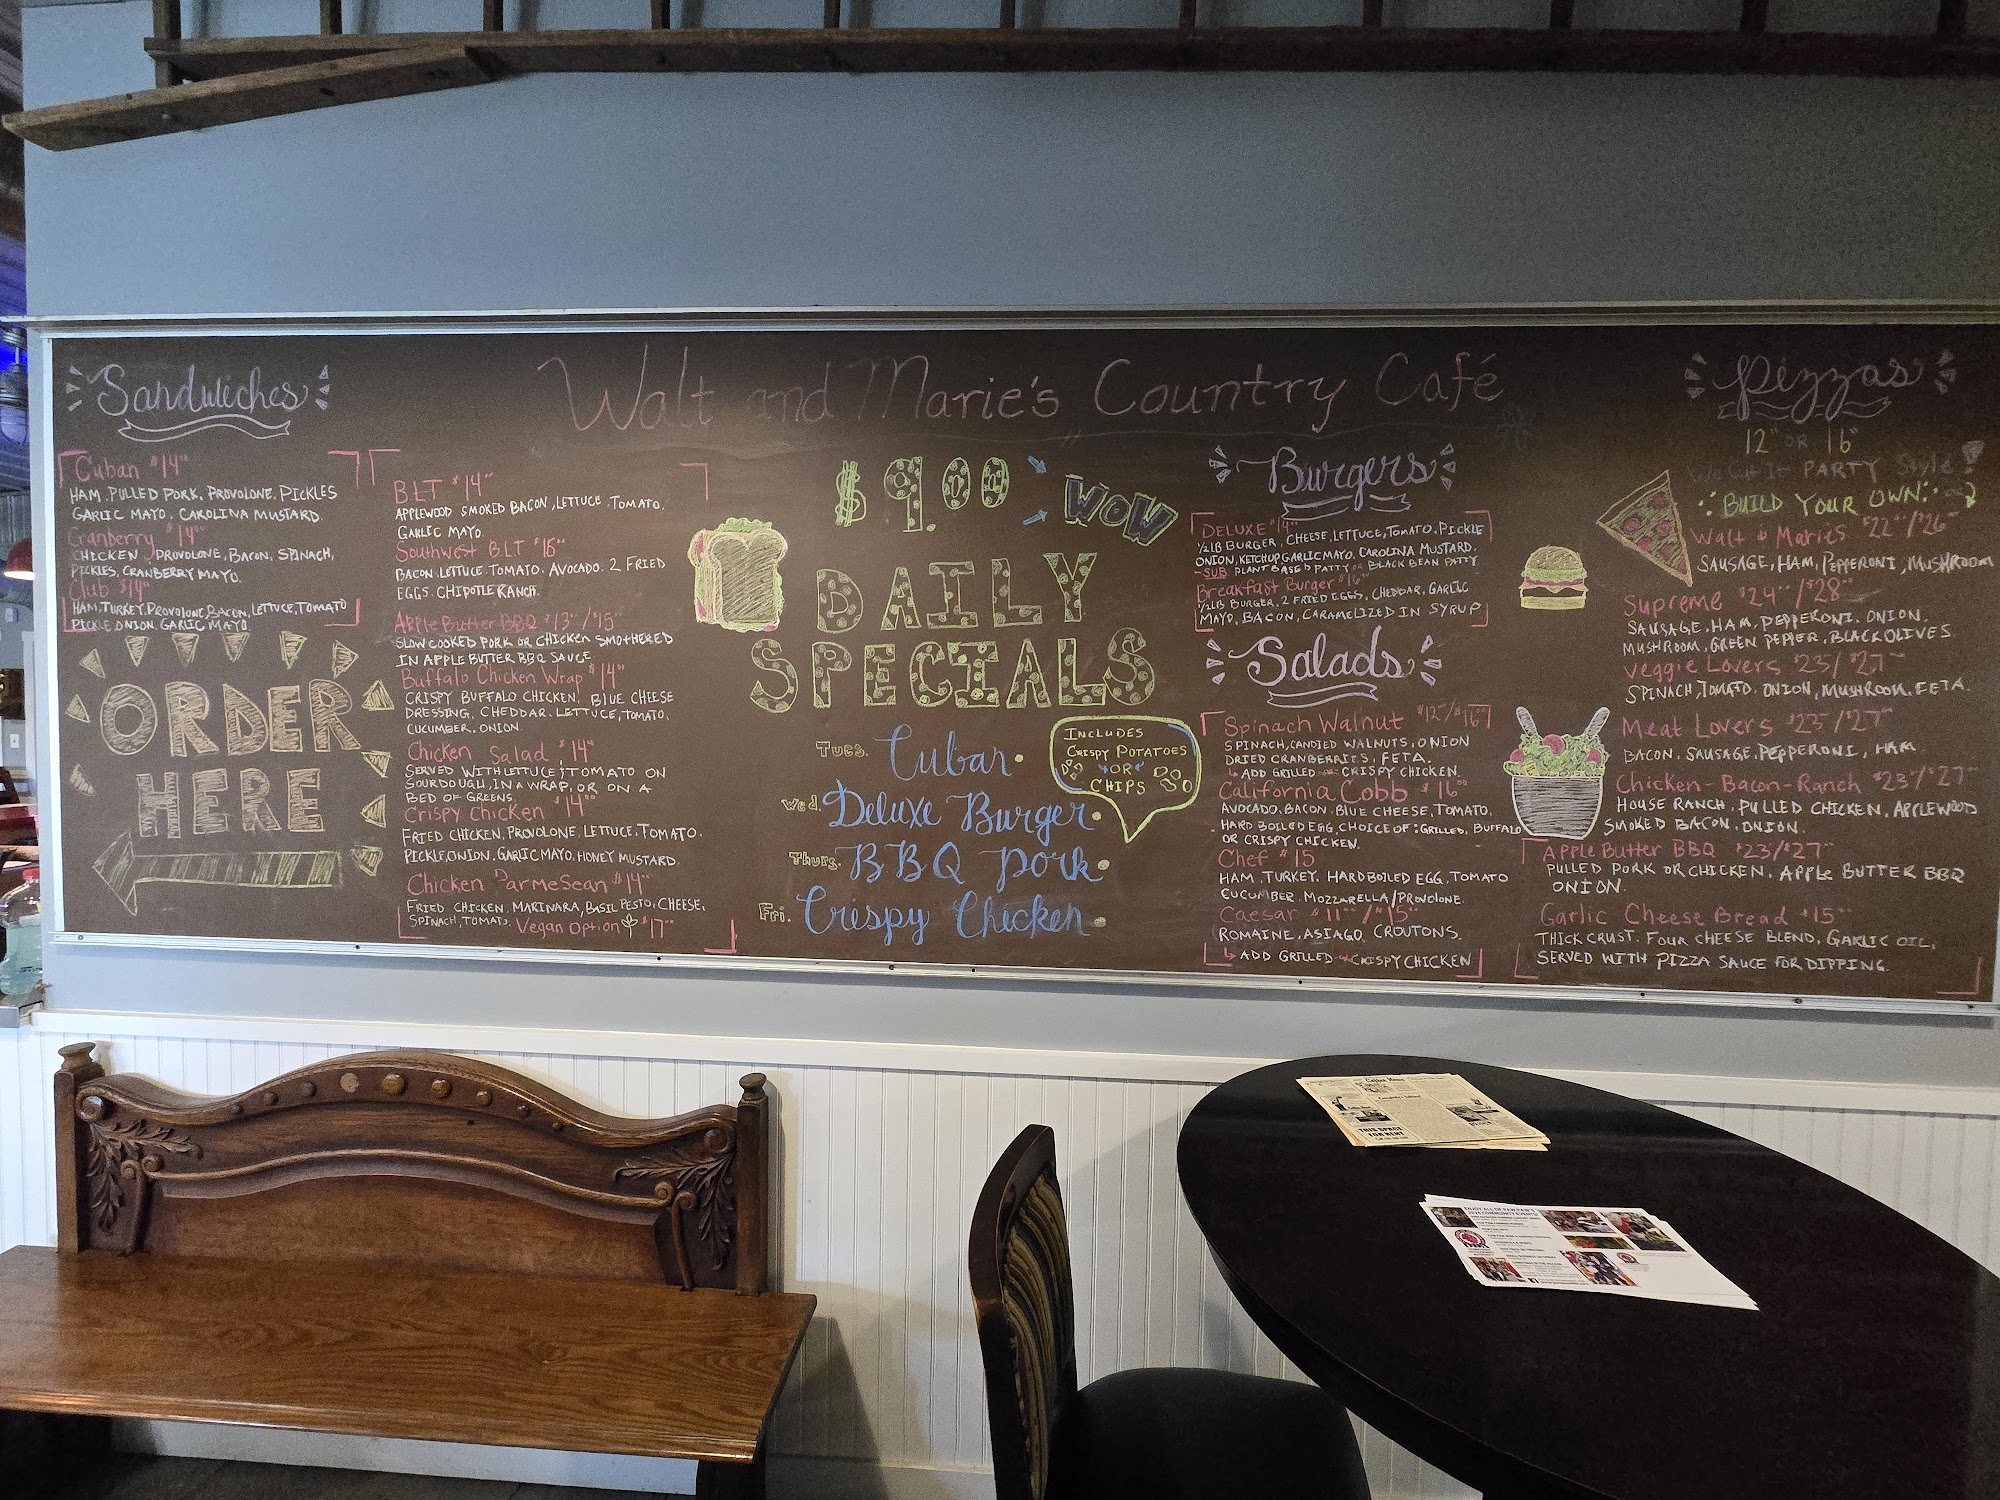 Walt and Marie's Country Café
Sandwiches
Cuban $14⁰⁰
HAM, PULLED PORK, PROVOLONE, PICKLES
GARLIC MAYO, CAROLINA MUSTARD.
Cranberry $14⁰⁰
CHICKEN, PROVOLONE, BACON, SPINACH,
PICKLES, CRANBERRY MAYO.
Club $14⁰⁰
HAM, TURKEY, PROVOLONE, BACON, LETTUCE, TOMATO
PICKLE, ONION, GARLIC MAYO
ORDER
HERE
BLT $14⁰⁰
APPLEWOOD SMOKED BACON, LETTUCE, TOMATO,
GARLIC MAYO.
Southwest BLT $16⁰⁰
BACON, LETTUCE, TOMATO, AVOCADO, 2 FRIED
EGGS, CHIPOTLE RANCH.
Apple Butter BBQ $13⁰⁰/$15⁰⁰
SLOW COOKED PORK OR CHICKEN SMOTHERED
IN APPLE BUTTER BBQ SAUCE
Buffalo Chicken Wrap $14⁰⁰
CRISPY BUFFALO CHICKEN, BLUE CHEESE
DRESSING, CHEDDAR, LETTUCE, TOMATO,
CUCUMBER, ONION
Chicken Salad $14⁰⁰
SERVED WITH LETTUCE & TOMATO ON
SOURDOUGH, IN A WRAP, OR ON A
BED OF GREENS
Crispy Chicken $14⁰⁰
FRIED CHICKEN, PROVOLONE, LETTUCE, TOMATO,
PICKLE, ONION, GARLIC MAYO, HONEY MUSTARD.
Chicken Parmesean $14⁰⁰
FRIED CHICKEN, MARINARA, BASIL PESTO, CHEESE,
SPINACH, TOMATO. Vegan Option $17⁰⁰
$9.00 WOW
DAILY
SPECIALS
Tues. Cuban
Wed. Deluxe Burger
Thurs. BBQ Pork
Fri. Crispy Chicken
INCLUDES
CRISPY POTATOES
OR
CHIPS
Burgers
DELUXE $14⁰⁰
½LB BURGER, CHEESE, LETTUCE, TOMATO, PICKLE
ONION, KETCHUP, GARLIC MAYO, CAROLINA MUSTARD.
-SUB PLANT BASED PATTY OR BLACK BEAN PATTY
Breakfast Burger $16⁰⁰
½LB BURGER, 2 FRIED EGGS, CHEDDAR, GARLIC
MAYO, BACON, CARAMELIZED IN SYRUP
Salads
Spinach Walnut $12⁰⁰/$16⁰⁰
SPINACH, CANDIED WALNUTS, ONION
DRIED CRANBERRIES, FETA.
ADD GRILLED OR CRISPY CHICKEN.
California Cobb $16⁰⁰
AVOCADO, BACON, BLUE CHEESE, TOMATO,
HARD BOILED EGG, CHOICE OF: GRILLED, BUFFALO
OR CRISPY CHICKEN.
Chef $15
HAM, TURKEY, HARD BOILED EGG, TOMATO
CUCUMBER, MOZZARELLA/PROVOLONE.
Caesar $11⁰⁰/$15⁰⁰
ROMAINE, ASIAGO, CROUTONS.
ADD GRILLED OR CRISPY CHICKEN
Pizzas
12" OR 16"
PARTY Style!
BUILD YOUR OWN:
Walt & Marie's $22⁰⁰/$26⁰⁰
SAUSAGE, HAM, PEPPERONI, MUSHROOM
Supreme $24⁰⁰/$28⁰⁰
SAUSAGE, HAM, PEPPERONI, ONION,
MUSHROOM, GREEN PEPPER, BLACK OLIVES
Veggie Lovers $23/$27⁰⁰
SPINACH, TOMATO, ONION, MUSHROOM, FETA.
Meat Lovers $23/$27⁰⁰
BACON, SAUSAGE, PEPPERONI, HAM
Chicken-Bacon-Ranch $23⁰⁰/$27⁰⁰
HOUSE RANCH, PULLED CHICKEN, APPLEWOOD
SMOKED BACON, ONION.
Apple Butter BBQ $23/$27⁰⁰
PULLED PORK OR CHICKEN, APPLE BUTTER BBQ
ONION.
Garlic Cheese Bread $15⁰⁰
THICK CRUST, FOUR CHEESE BLEND, GARLIC OIL,
SERVED WITH PIZZA SAUCE FOR DIPPING.
THIS SPACE
FOR RENT
ENJOY ALL OF PAW PAW'S
2024 COMMUNITY EVENTS!